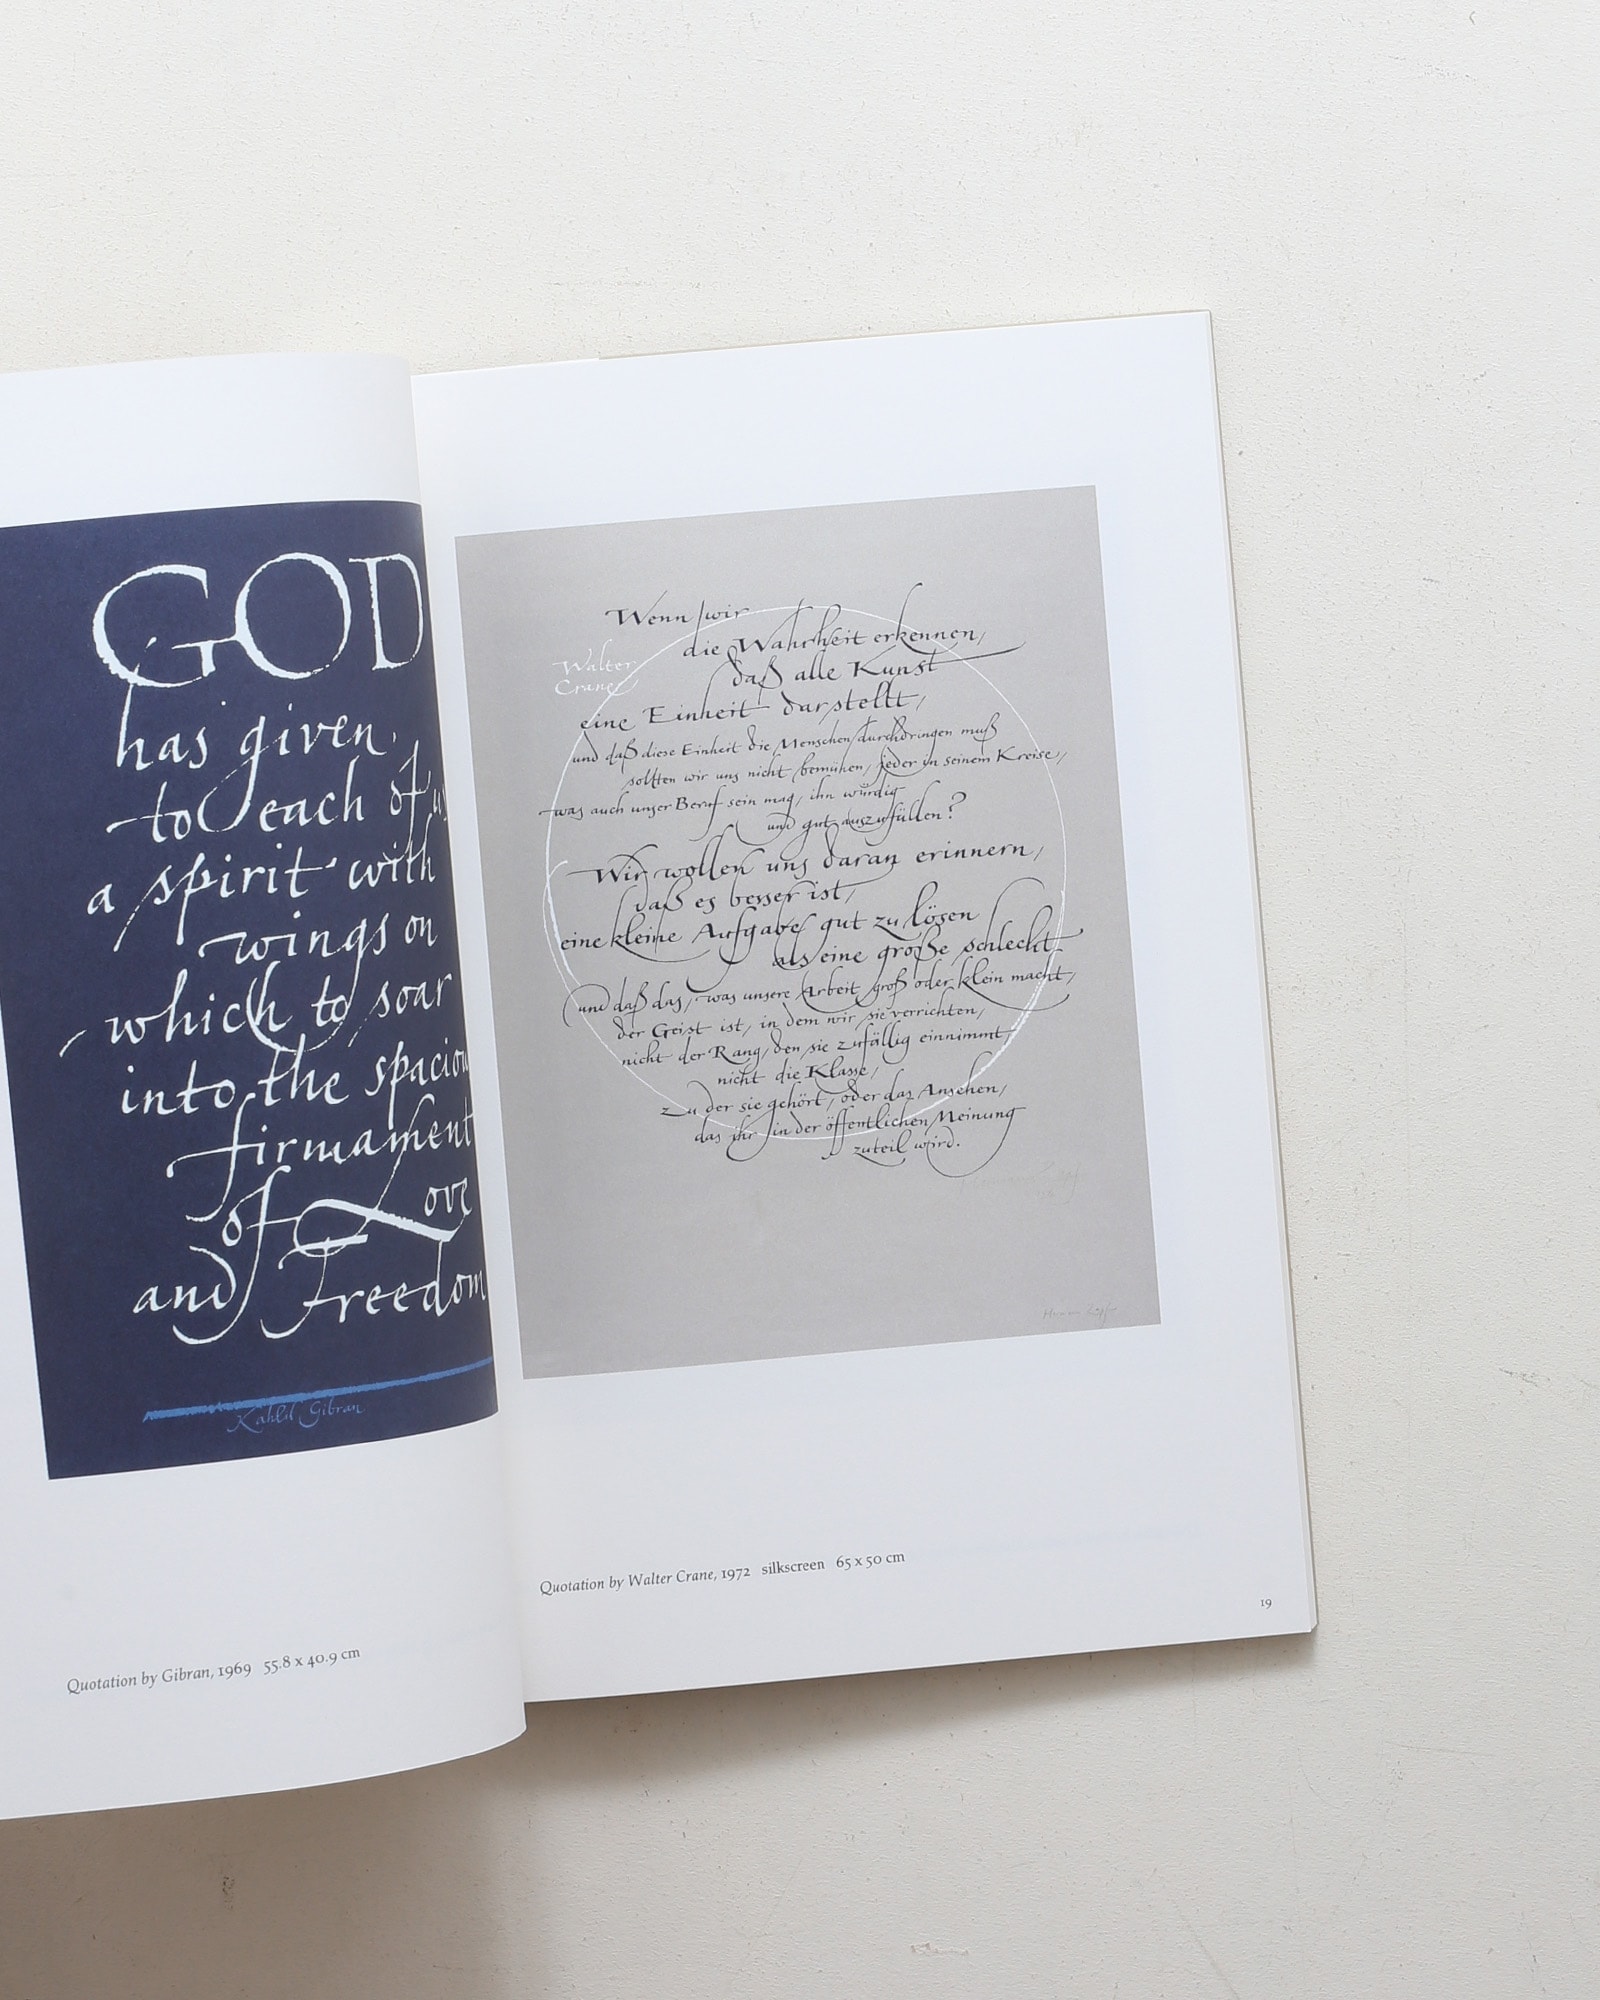 GOD
has given
to each of us
a spirit with
wings on
which to soar
into the spacious
firmament
of Love
and Freedom
Kahlil Gibran
Quotation by Gibran, 1969 55.8 x 40.9 cm
Wenn wir
die Wahrheit erkennen,
Walter
Crane
daß alle Kunst
eine Einheit darstellt,
und daß diese Einheit die Menschen durchdringen muß
sollten wir uns nicht bemühen, jeder in seinem Kreise,
was auch unser Beruf sein mag, ihn würdig
und gut auszufüllen?
Wir wollen uns daran erinnern,
daß es besser ist,
eine kleine Aufgabe gut zu lösen
als eine große schlecht
und daß das, was unsere Arbeit groß oder klein macht,
der Geist ist, in dem wir sie verrichten,
nicht der Rang, den sie zufällig einnimmt,
nicht die Klasse,
zu der sie gehört, oder das Ansehen,
das ihr in der öffentlichen Meinung
zuteil wird.
Quotation by Walter Crane, 1972 silkscreen 65 x 50 cm
19